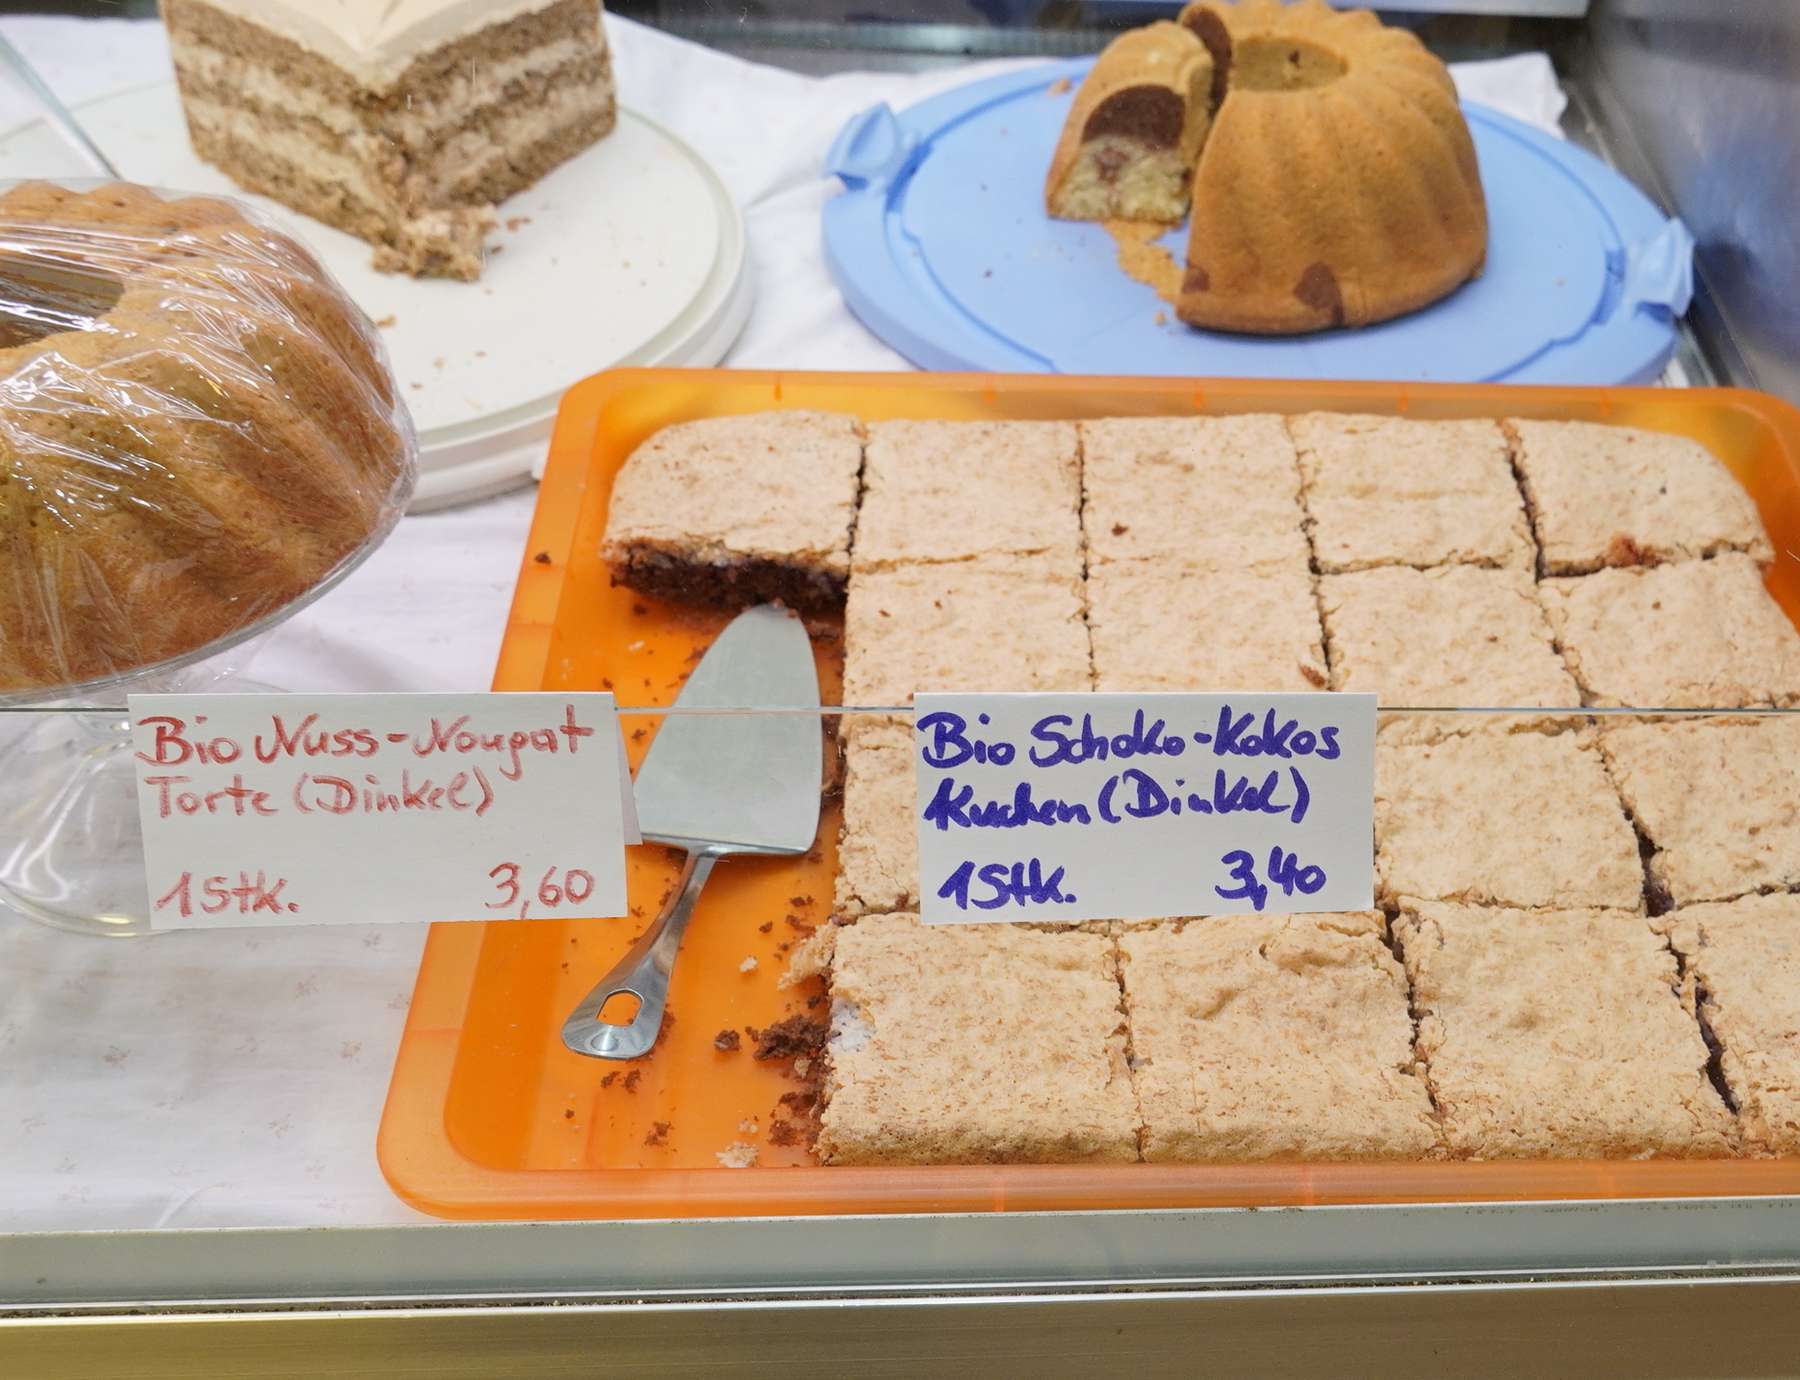 Bio Nuss-Nougat
Torte (Dinkel)
1 Stk. 3,60
Bio Schoko-Kokos
Kuchen (Dinkel)
1 Stk. 3,40